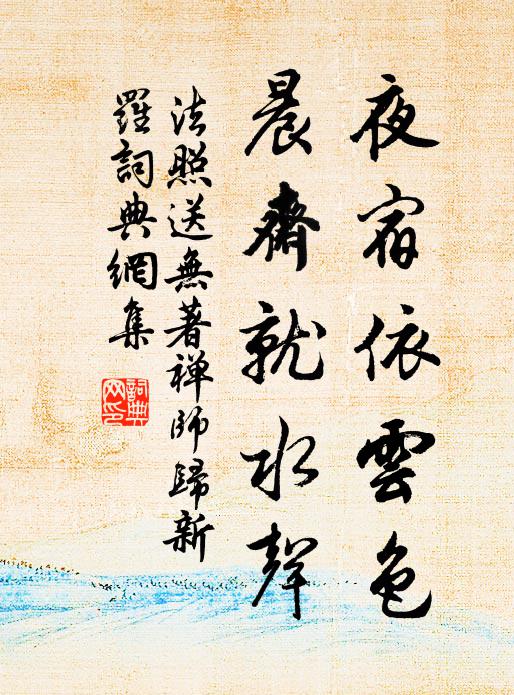 夜宿依雲色
晨齋就水聲
法照送無著禅師歸新
羅詞典網集
詞典
网印